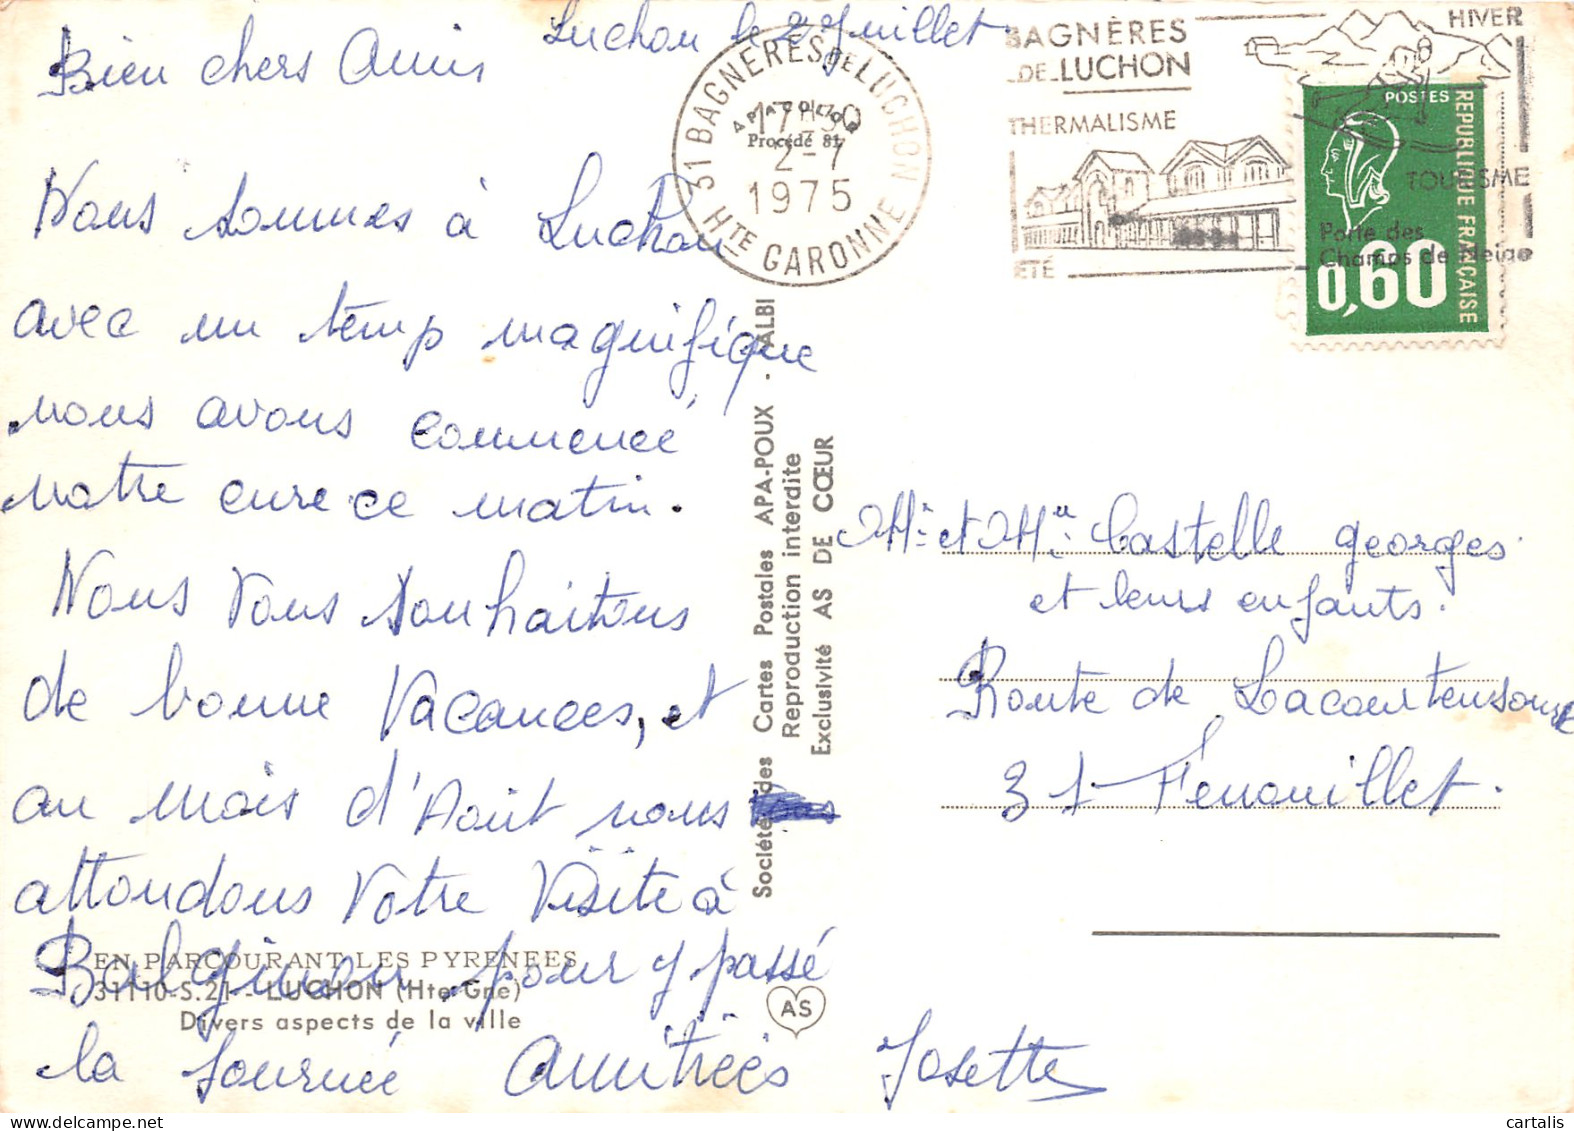 Luchon le 2 Juillet
Bien chers Amis
Nous sommes à Luchon
avec un temp magnifique
nous avons commencé
notre cure ce matin.
Nous Vous souhaitons
de bonne Vacances, et
au mois d'Aout nous
attendons Votre Visite à
pour y passé
la journée Amitiées Josette
EN PARCOURANT LES PYRENEES
31110-S.21 - LUCHON (Hte-Gne)
Divers aspects de la ville
AS
Société des Cartes Postales APA-POUX - ALBI
Reproduction interdite
Exclusivité AS DE CŒUR
APACOLOR
Procédé 81
31 BAGNERES DE LUCHON
17H30
2-7
1975
HTE GARONNE
BAGNÈRES
DE LUCHON
THERMALISME
ÉTÉ
HIVER
TOURISME
Porte des
Champs de Neige
POSTES
REPUBLIQUE FRANÇAISE
0,60
Mr et Mme Castelle georges
et leurs enfants.
Route de Lacourtensourt
31 - Fenouillet.
cartalis